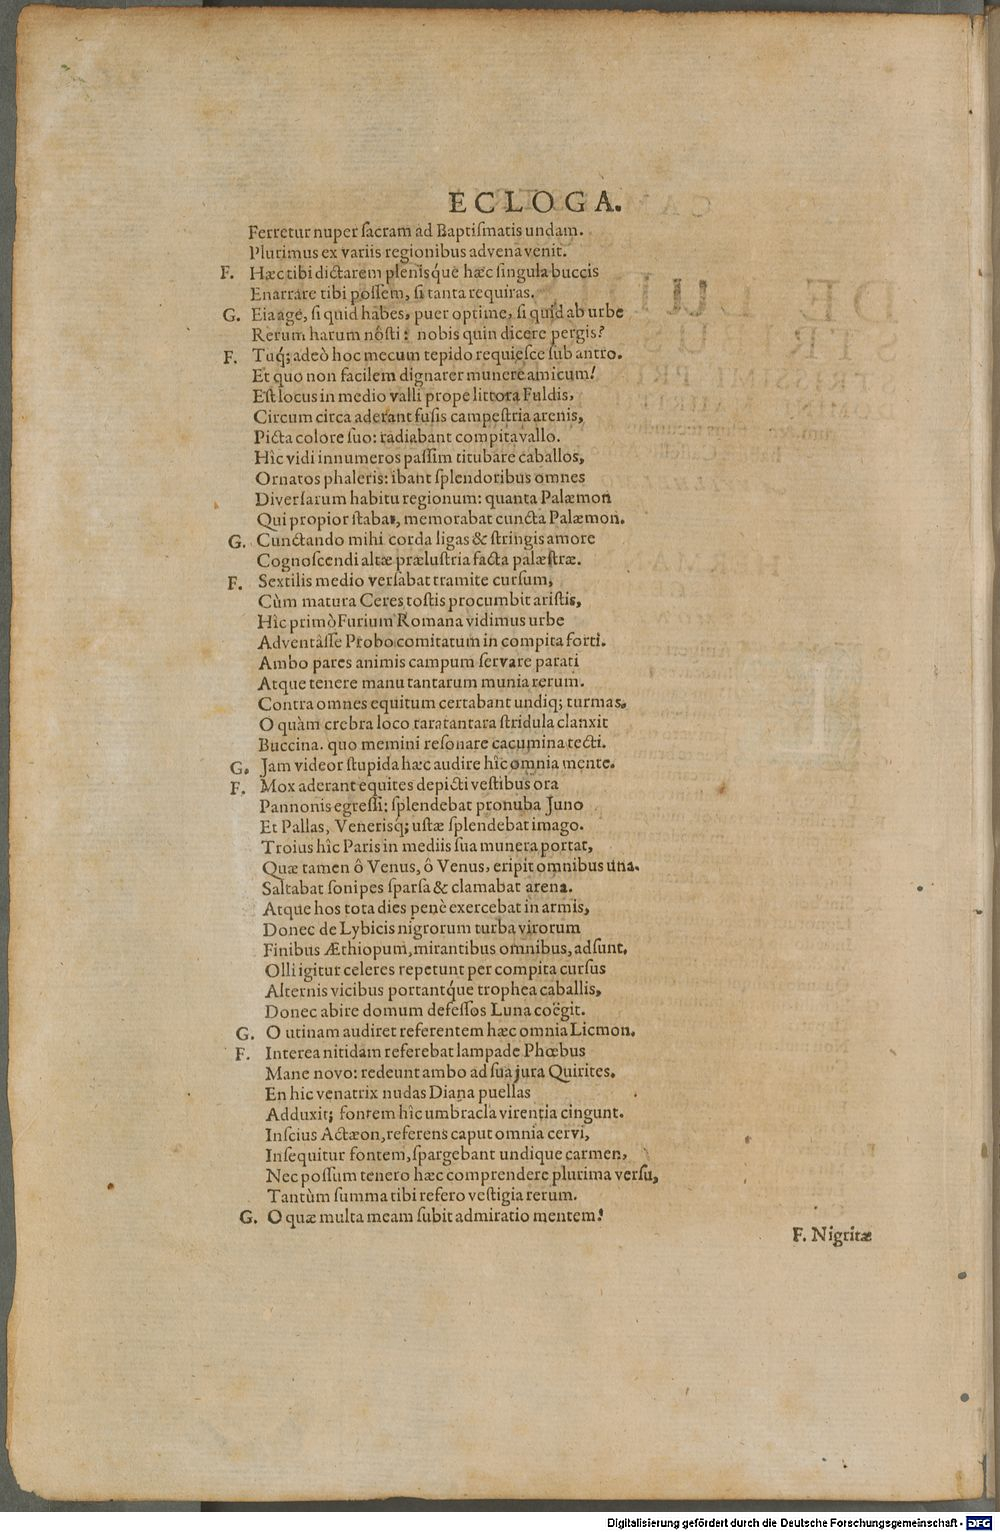 ECLOGA.
Ferretur nuper ſacram ad Baptiſmatis undam.
Plurimus ex variis regionibus advena venit.
F. Hæc tibi dictarem plenisq́ue hæc ſingula buccis
Enarrare tibi poſſem, ſi tanta requiras.
G. Eia age, ſi quid habes, puer optime, ſi quid ab urbe
Rerum harum nôſti: nobis quin dicere pergis?
F. Tuq́; adeò hoc mecum tepido requieſce ſub antro.
Et quo non facilem dignarer munere amicum!
Eſt locus in medio valli prope littora Fuldis,
Circum circa aderant fuſis campeſtria arenis,
Picta colore ſuo: radiabant compita vallo.
Hîc vidi innumeros paſſim titubare caballos,
Ornatos phaleris: ibant ſplendoribus omnes
Diverſarum habitu regionum: quanta Palæmon
Qui propior ſtabat, memorabat cuncta Palæmon.
G. Cunctando mihi corda ligas & ſtringis amore
Cognoſcendi altæ præluſtria facta palæſtræ.
F. Sextilis medio verſabat tramite curſum,
Cùm matura Ceres toſtis procumbit ariſtis,
Hîc primò Furium Romana vidimus urbe
Adventâſſe Probo comitatum in compita forti.
Ambo pares animis campum ſervare parati
Atque tenere manu tantarum munia rerum.
Contra omnes equitum certabant undiq; turmas.
O quàm crebra loco taratantara ſtridula clanxit
Buccina. quo memini reſonare cacumina tecti.
G. Jam videor ſtupida hæc audire hîc omnia mente.
F. Mox aderant equites depicti veſtibus ora
Pannonis egreſſi: ſplendebat pronuba Juno
Et Pallas, Venerisq́; uſtæ ſplendebat imago.
Troius hîc Paris in mediis ſua munera portat,
Quæ tamen ô Venus, ô Venus, eripit omnibus una.
Saltabat ſonipes ſparſa & clamabat arena.
Atque hos tota dies penè exercebat in armis,
Donec de Lybicis nigrorum turba virorum
Finibus Æthiopum, mirantibus omnibus, adſunt.
Olli igitur celeres repetunt per compita curſus
Alternis vicibus portantq́ue trophea caballis,
Donec abire domum defeſſos Luna coëgit.
G. O utinam audiret referentem hæc omnia Licmon.
F. Interea nitidam referebat lampade Phœbus
Mane novo: redeunt ambo ad ſua jura Quirites.
En hic venatrix nudas Diana puellas
Adduxit; fontem hîc umbracla virentia cingunt.
Inſcius Actæon, referens caput omnia cervi,
Inſequitur fontem, ſpargebant undique carmen,
Nec poſſum tenero hæc comprendere plurima verſu,
Tantùm ſumma tibi refero veſtigia rerum.
G. O quæ multa meam ſubit admiratio mentem!
F. Nigritæ
Digitalisierung gefördert durch die Deutsche Forschungsgemeinschaft - DFG